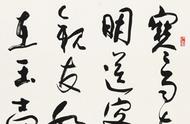 寒雨連
明送客
親友如
在玉壺